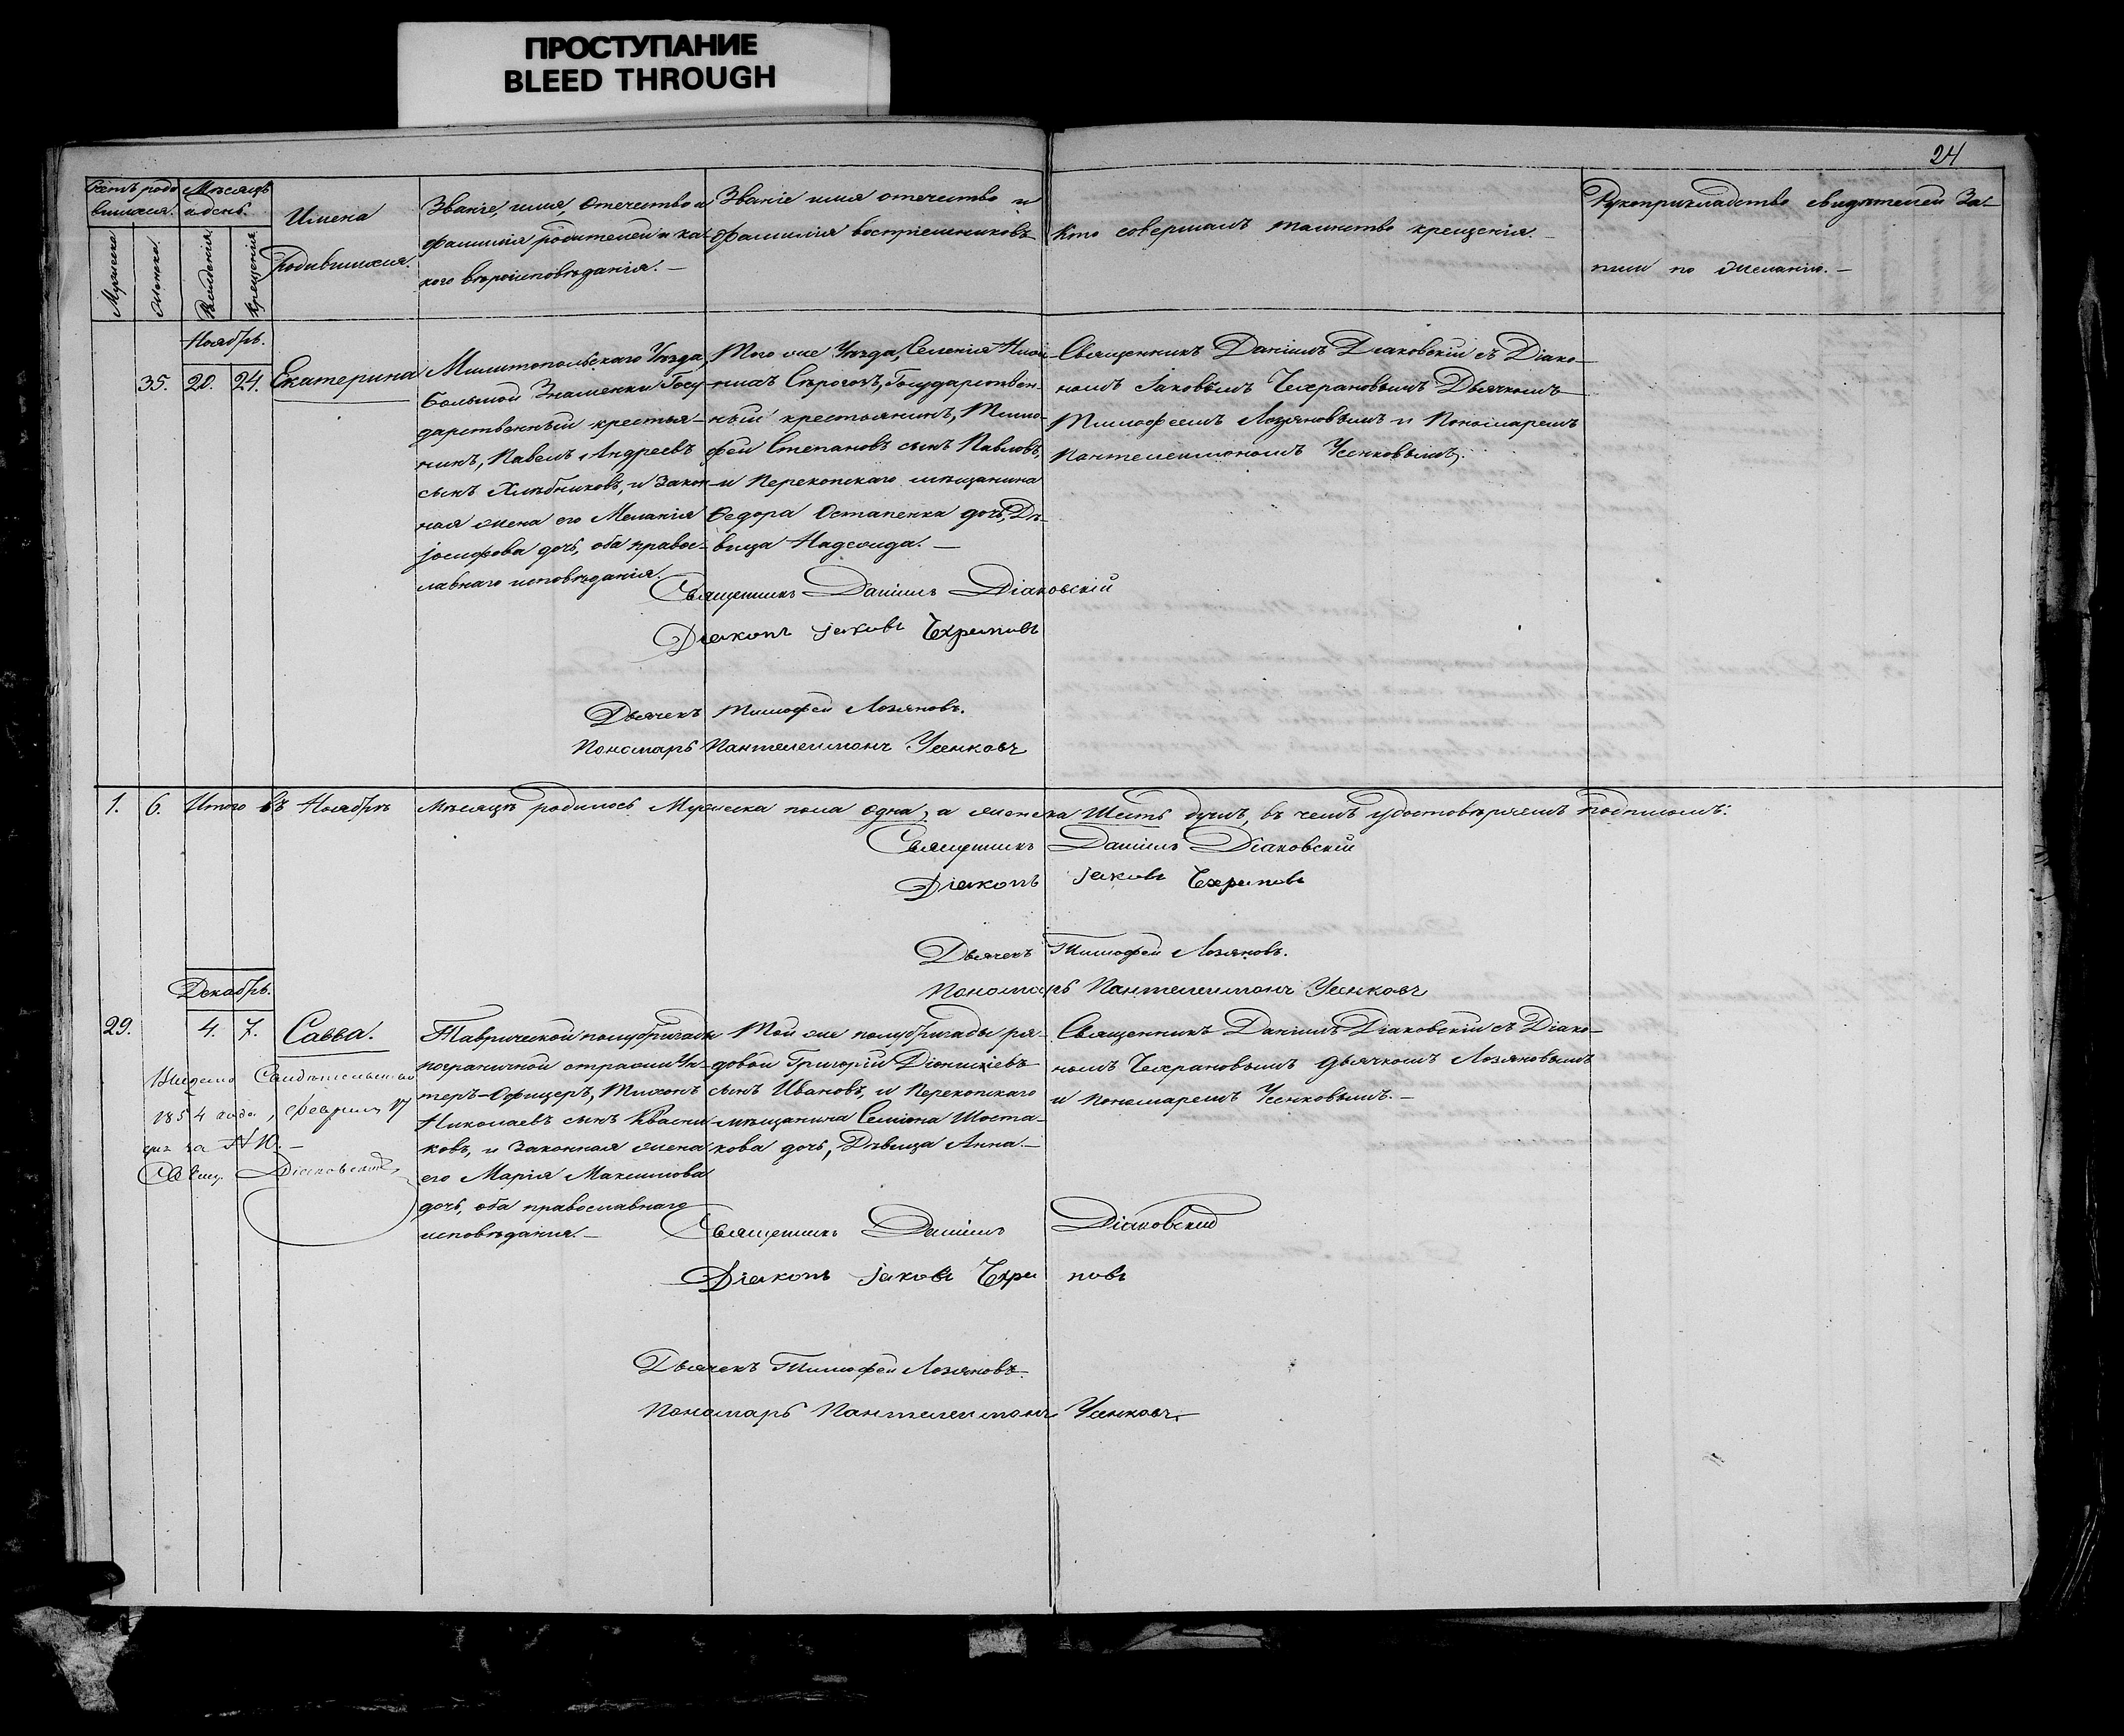 ПРОСТУПАНИЕ
BLEED THROUGH
24
Счетъ родившихся.
Мужеска
Женска
Мѣсяцъ и день.
Рожденія
Крещенія
Имена
родившихся.
Званіе, имя, отечество и
фамилія родителей и ка-
кого вѣроисповѣданія. —
Званіе имя отечество и
фамилія воспріемниковъ
Кто совершалъ таинство крещенія. —
Рукоприкладство свидѣтелей За-
писи по желанію. —
Ноябрь.
35. 20. 24. Екатерина
Мелитопольскаго Уѣзда,
Большой Знаменки Госу-
дарственный крестья-
нинъ, Павелъ Андреевъ
сынъ Хлѣбниковъ, и Закон-
ная жена его Меланія
Іосифова дочь, оба правос-
лавнаго исповѣданія.
Того же Уѣзда, Селенія Ниж-
нихъ Сѣрогозъ, Государствен-
ный крестьянинъ, Тимо-
фей Степановъ сынъ Павловъ,
и Перекопскаго мѣщанина
Федора Остапенка дочь, Дѣ-
вица Надежда. —
Священникъ Даніилъ Діаковскій съ Діако-
номъ Іаковымъ Чехрановымъ Дьячкомъ
Тимофеемъ Лозяновымъ и Пономаремъ
Пантелеимономъ Усенковымъ.
Священникъ Даніилъ Діаковскій
Діаконъ Іаковъ Чехрановъ
Дьячекъ Тимофей Лозяновъ.
Пономарь Пантелеимонъ Усенковъ
1. 6. Итого въ Ноябрѣ мѣсяцѣ родилось Мужеска пола одна, а женска Шесть душъ, въ чемъ удостовѣряемъ подписомъ:
Священникъ Даніилъ Діаковскій
Діаконъ Іаковъ Чехрановъ
Дьячекъ Тимофей Лозяновъ.
Пономарь Пантелеимонъ Усенковъ
Декабрь.
29. 4. 7. Савва.
Свидѣтельство
1854 года, февраля 17
дня за № 10. —
Свящ. Діаковскій
Таврической полубригады
пограничной стражи Ун-
теръ-Офицеръ, Тихонъ
Николаевъ сынъ Квасни-
ковъ, и Законная жена
его Марія Максимова
дочь, оба православнаго
исповѣданія. —
Той же полубригады ря-
довой Григорій Діонисіевъ
сынъ Ивановъ, и Перекопскаго
мѣщанина Семіона Шоста-
кова дочь, Дѣвица Анна. —
Священникъ Даніилъ Діаковскій съ Діако-
номъ Чехрановымъ дьячкомъ Лозяновымъ
и Пономаремъ Усенковымъ. —
Священникъ Даніилъ Діаковскій
Діаконъ Іаковъ Чехрановъ
Дьячекъ Тимофей Лозяновъ.
Пономарь Пантелеимонъ Усенковъ.